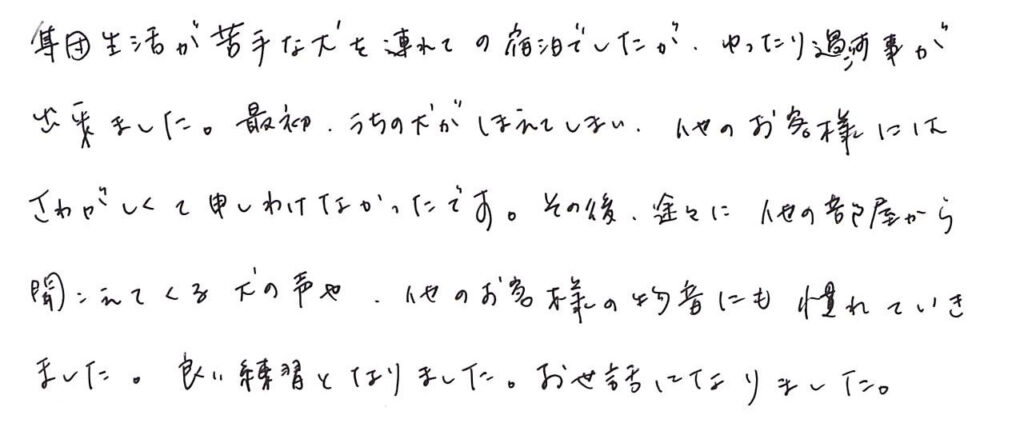 集団生活が苦手な犬を連れての宿泊でしたが、ゆったり過ごす事が
出来ました。最初、うちの犬がほえてしまい、他のお客様には
さわがしくて申しわけなかったです。その後、途々に他の部屋から
聞こえてくる犬の声や、他のお客様の物音にも慣れていき
ました。良い練習となりました。お世話になりました。